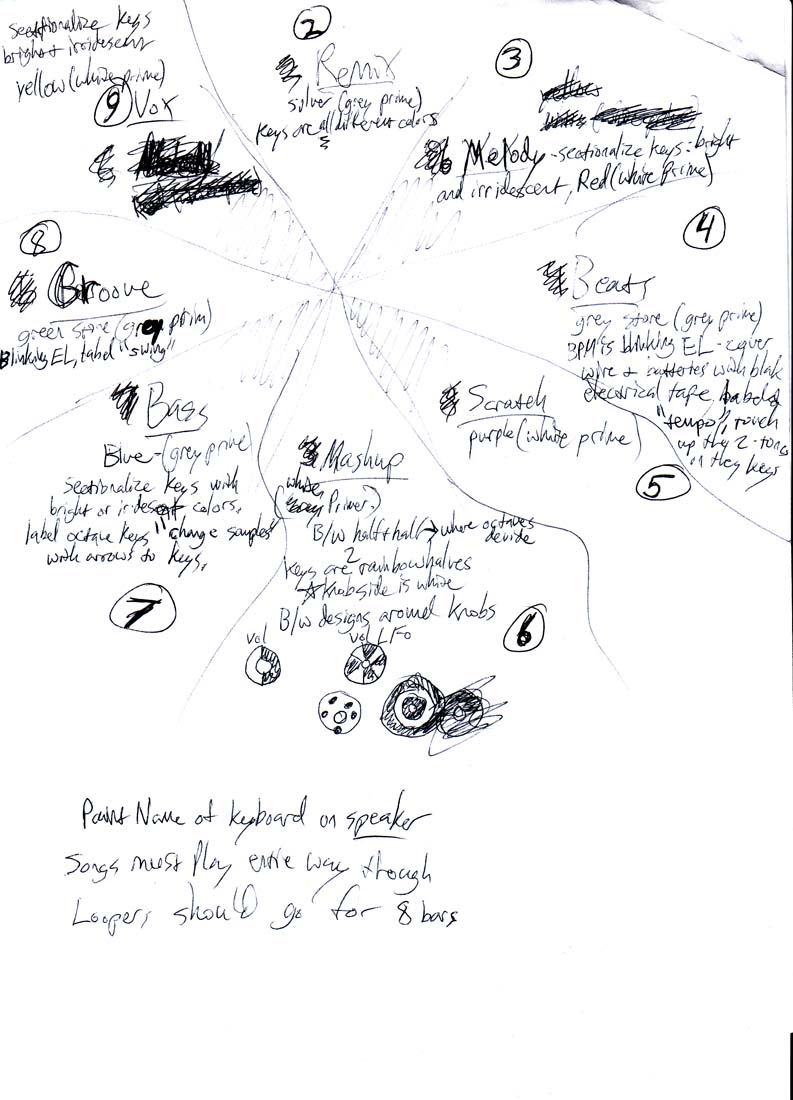 sectionalize keys
bright + irridescent
yellow (white prime)
9 Vox
2
Remix
silver (grey prime)
Keys are all different colors
3
yellow
Melody - sectionalize keys - bright
and irridescent, Red (white prime)
4
Beats
grey store (grey prime)
BPM is blinking EL - cover
wire + batteries with blak
electrical tape. Label
"tempo", touch
up the 2-tone
on they keys
5
Scratch
purple (white prime)
6
Mashup
white
(Primer)
B/W half + half → where octaves
devide
Keys are 2 rainbow halves
☆ knobside is white
B/W designs around knobs
Vol
Vol LFO
7
Bass
Blue - (grey prime)
sectionalize keys with
bright or iridescent colors.
label octave keys "change samples"
with arrows to keys.
8
Groove
green store (grey prim)
Blinking EL, label "swing"
Paint Name of keyboard on speaker
Songs must play entire way though
Loopers should go for 8 bars